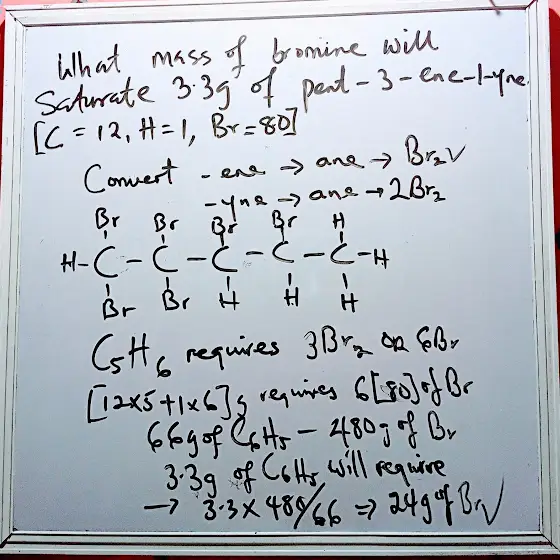 What mass of bromine will
Saturate 3.3g of pent-3-ene-1-yne.
[C = 12, H = 1, Br = 80]
Convert -ene → ane → Br₂ ✓
-yne → ane → 2Br₂
Br Br Br Br H
H-C-C-C-C-C-H
Br Br H H H
C₅H₆ requires 3Br₂ OR 6Br
[12×5+1×6]g requires 6[80] of Br
66g of C₆H₅ - 480g of Br
3.3g of C₆H₅ will require
→ 3.3 × 480/66 ⇒ 24g of Br ✓